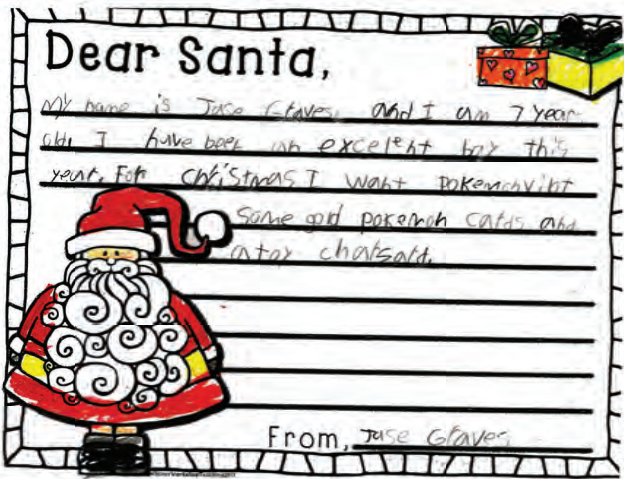 Dear Santa,
My name is Jase Graves, and I am 7 year
old. I have been an excelent boy this
year. For christmas I want pokemon vint
Some gold pokemon cards and
a toy charsard.
From, Jase Graves